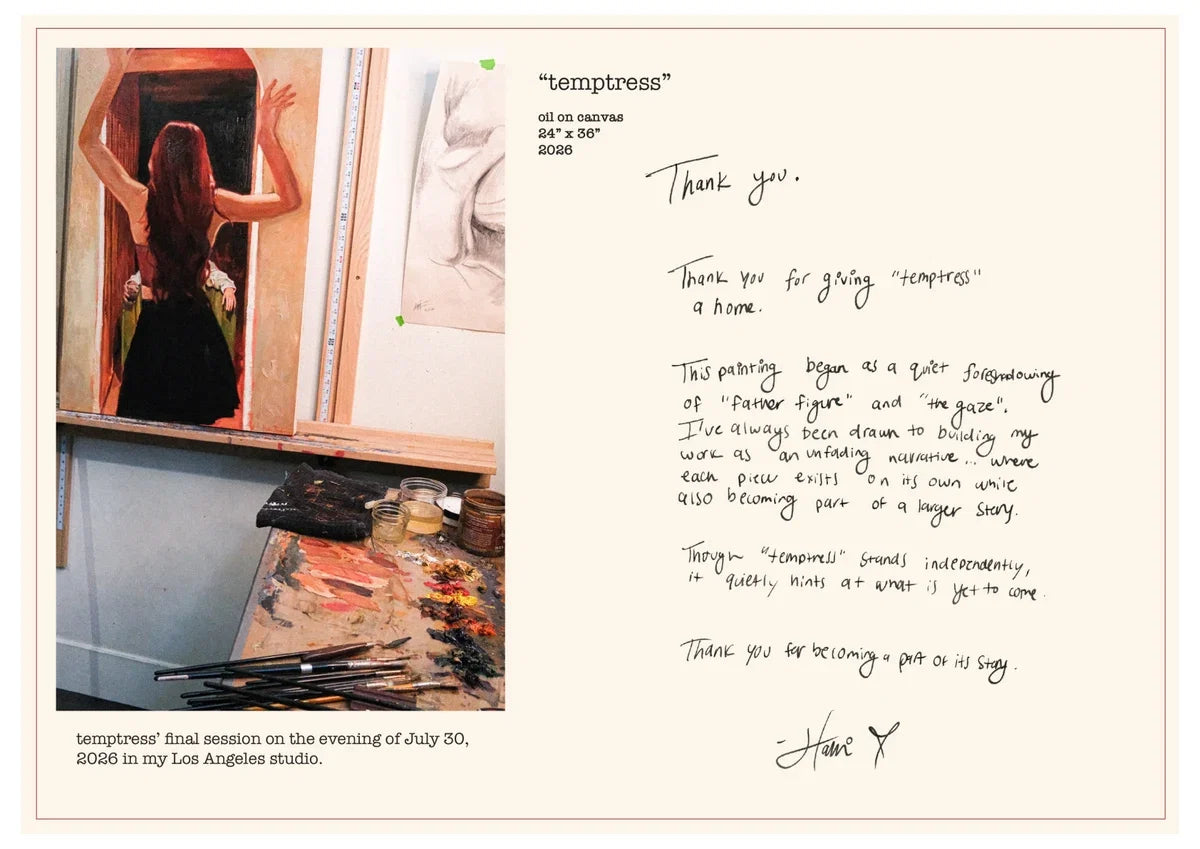 “temptress”
oil on canvas
24” x 36”
2026
Thank you.
Thank you for giving "temptress"
a home.
This painting began as a quiet foreshadowing
of "father figure" and "the gaze".
I've always been drawn to building my
work as an unfading narrative... where
each piece exists on its own while
also becoming part of a larger story.
Though "temptress" stands independently,
it quietly hints at what is yet to come.
Thank you for becoming a part of its story.
temptress’ final session on the evening of July 30,
2026 in my Los Angeles studio.